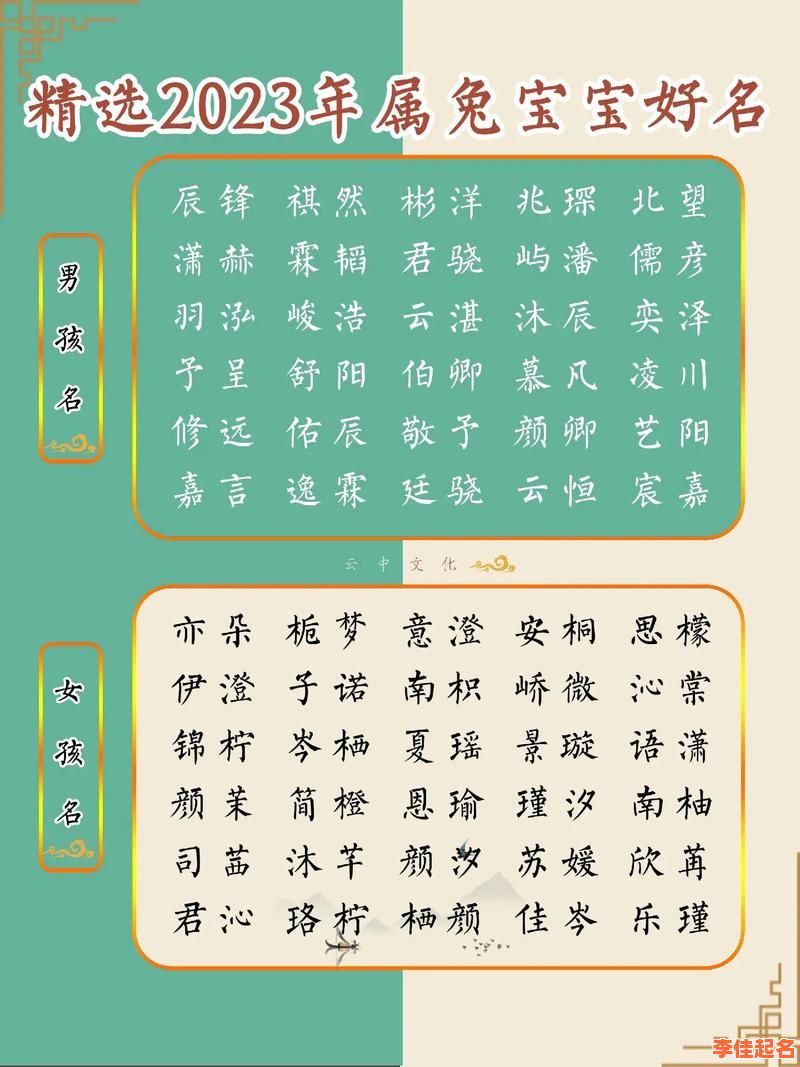 精选2023年属兔宝宝好名
男孩名
辰锋 祺然 彬洋 兆琛 北望
潇赫 霖韬 君骁 屿潘 儒彦
羽泓 峻浩 云湛 沐辰 奕泽
予呈 舒阳 伯卿 慕凡 凌川
修远 佑辰 敬予 颜卿 艺阳
嘉言 逸霖 廷骁 云恒 宸嘉
云中文化
女孩名
亦朵 栀梦 意澄 安桐 思檬
伊澄 子诺 南枳 峤微 沁棠
锦柠 岑栖 夏瑶 景璇 语潇
颜茉 简橙 恩瑜 瑾汐 南柚
司茜 沐芊 颜汐 苏媛 欣苒
君沁 珞柠 栖颜 佳岑 乐瑾
李佳起名